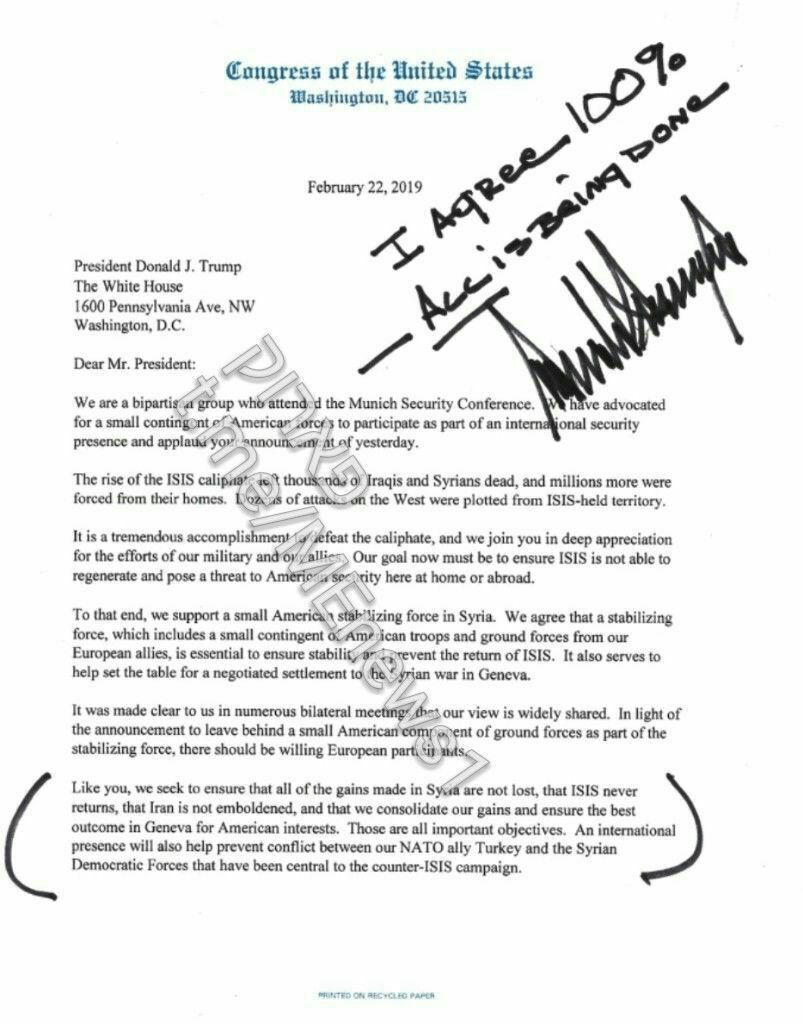 Congress of the United States
Washington, DC 20515
February 22, 2019
I AGREE 100%
— ALL IS BEING DONE
President Donald J. Trump
The White House
1600 Pennsylvania Ave, NW
Washington, D.C.
Dear Mr. President:
We are a bipartisan group who attended the Munich Security Conference. We have advocated
for a small contingent of American forces to participate as part of an international security
presence and applaud your announcement of yesterday.
The rise of the ISIS caliphate left thousands of Iraqis and Syrians dead, and millions more were
forced from their homes. Dozens of attacks on the West were plotted from ISIS-held territory.
It is a tremendous accomplishment to defeat the caliphate, and we join you in deep appreciation
for the efforts of our military and our allies. Our goal now must be to ensure ISIS is not able to
regenerate and pose a threat to American security here at home or abroad.
To that end, we support a small American stabilizing force in Syria. We agree that a stabilizing
force, which includes a small contingent of American troops and ground forces from our
European allies, is essential to ensure stability and prevent the return of ISIS. It also serves to
help set the table for a negotiated settlement to the Syrian war in Geneva.
It was made clear to us in numerous bilateral meetings that our view is widely shared. In light of
the announcement to leave behind a small American component of ground forces as part of the
stabilizing force, there should be willing European participants.
Like you, we seek to ensure that all of the gains made in Syria are not lost, that ISIS never
returns, that Iran is not emboldened, and that we consolidate our gains and ensure the best
outcome in Geneva for American interests. Those are all important objectives. An international
presence will also help prevent conflict between our NATO ally Turkey and the Syrian
Democratic Forces that have been central to the counter-ISIS campaign.
PRINTED ON RECYCLED PAPER
t.me/MEnews1